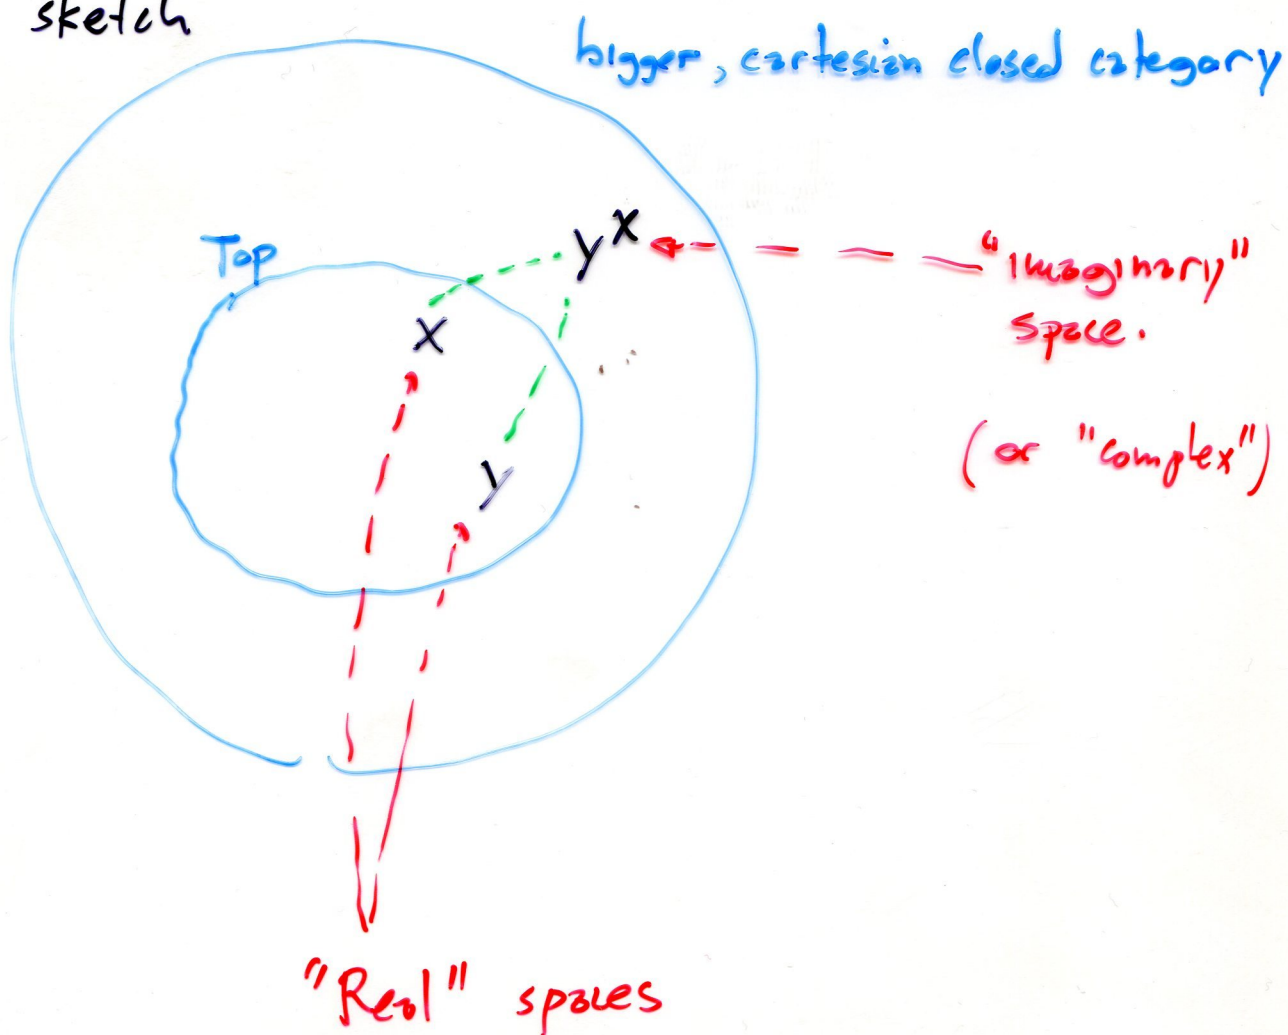 sketch
bigger, cartesian closed category
Top
y^x
x
y
"imaginary"
space.
(or "complex")
"Real" spaces